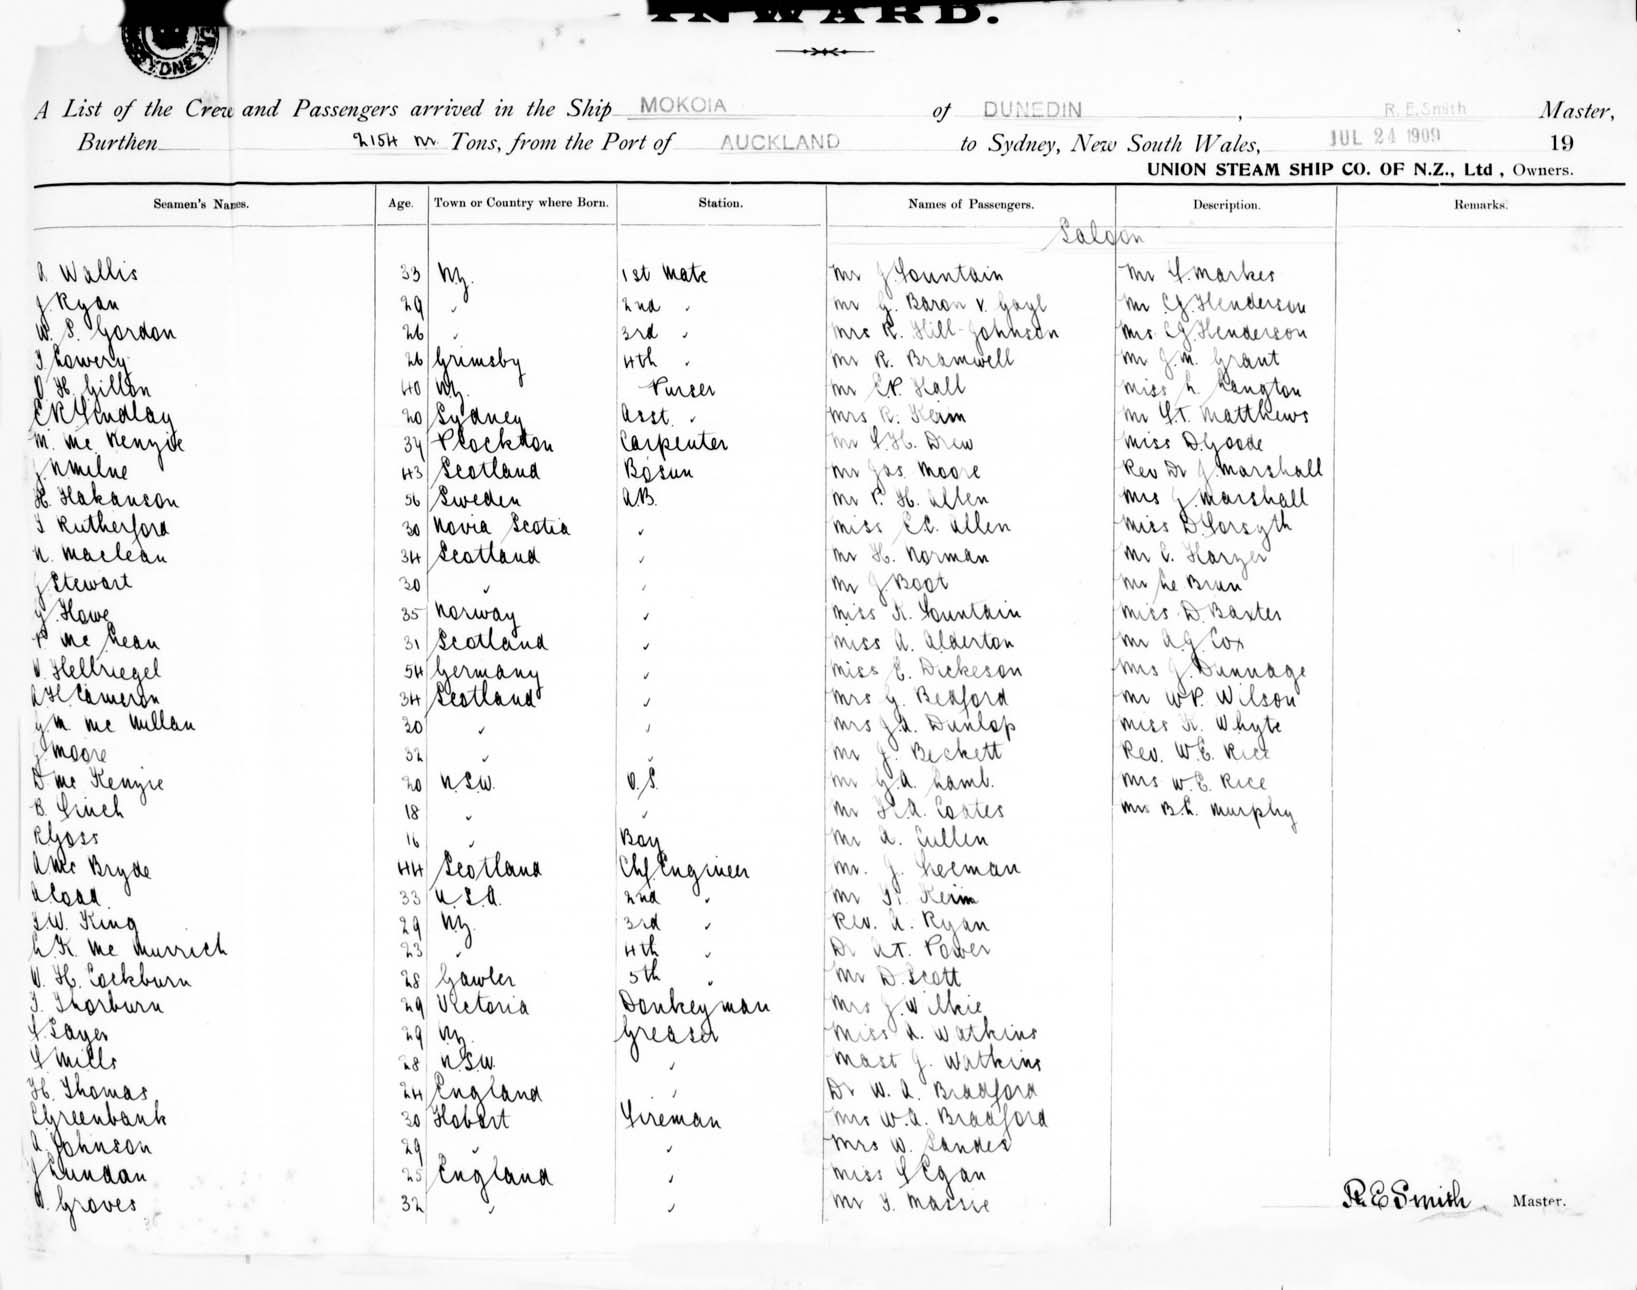 INWARD.
SYDNEY
A List of the Crew and Passengers arrived in the Ship MOKOIA of DUNEDIN, R. E. Smith Master,
Burthen 2154 Tons, from the Port of AUCKLAND to Sydney, New South Wales, JUL 24 1909 19
UNION STEAM SHIP CO. OF N.Z., Ltd, Owners.
Seamen's Names. Age. Town or Country where Born. Station. Names of Passengers. Description. Remarks.
Saloon
A Wallis 33 N.Z. 1st Mate Mr J. Fountain Mr F. Markes
J Ryan 29 " 2nd " Mr G. Baron v. Gayl Mr C.G. Henderson
W. S. Gordon 26 " 3rd " Mrs R. Hill-Johnson Mrs C.G. Henderson
Lowery 26 Grimsby 4th " Mr R. Bramwell Mr J. M. Grant
H. Gillon 40 N.Z. Purser Mr C.P. Hall Miss L. Langton
Findlay 20 Sydney Asst. " Mrs R. Keirn Mr Matthews
M. McKenzie 34 Plockton Carpenter Mr F. H. Drew Miss D. Goode
J Milne 43 Scotland Bosun Mr Jas. Moore Rev Dr J. Marshall
H. Hakanson 56 Sweden A.B. Mr P. H. Allen Mrs J. Marshall
Rutherford 30 Novia Scotia " Miss C.C. Allen Miss D. Forsyth
N. Maclean 34 Scotland " Mr H. Norman Mr C. Harzer
J Stewart 30 " " Mr J. Boot Mr Le Brun
Howe 35 Norway " Miss K. Fountain Miss D. Baxter
P McLean 31 Scotland " Miss A. Alderton Mr A.J. Cox
Hellriegel 54 Germany " Miss E. Dickeson Mrs J. Dunnage
A H Cameron 34 Scotland " Mrs G. Bedford Mr W.P. Wilson
J. M. McMillan 30 " " Mrs J. A. Dunlop Miss K. Whyte
J Moore 32 " " Mr J. Beckett Rev. W.E. Rice
D McKenzie 20 N.S.W. O.S. Mr G.A. Lamb. Mrs W.E. Rice
B. Finch 18 " " Mr F. A. Coates Mrs B.L. Murphy
R Goss 16 " Boy Mr A. Cullen
A McBryde 44 Scotland Chf. Engineer Mr. J. Leeman
A Coad 33 U.S.A. 2nd " Mr Keirn
W. King 29 N.Z. 3rd " Rev. A. Ryan
L. K. McMurrich 23 " 4th " Dr A.T. Power
W. H. Cockburn 28 Gawler 5th " Mr D. Scott
T. Thorburn 29 Victoria Donkeyman Mrs J. Wilkie
F. Sayer 29 N.Z. Greaser Miss A. Watkins
F Mills 28 N.S.W. " Mast J. Watkins
H. Thomas 24 England " Dr W. A. Bradford
C Greenbank 30 Hobart Fireman Mrs W.A. Bradford
A. Johnson 29 " " Mrs W. Sandes
J Lundan 25 England " Miss F Egan
Groves 32 " " Mr T. Massie
R. E Smith Master.